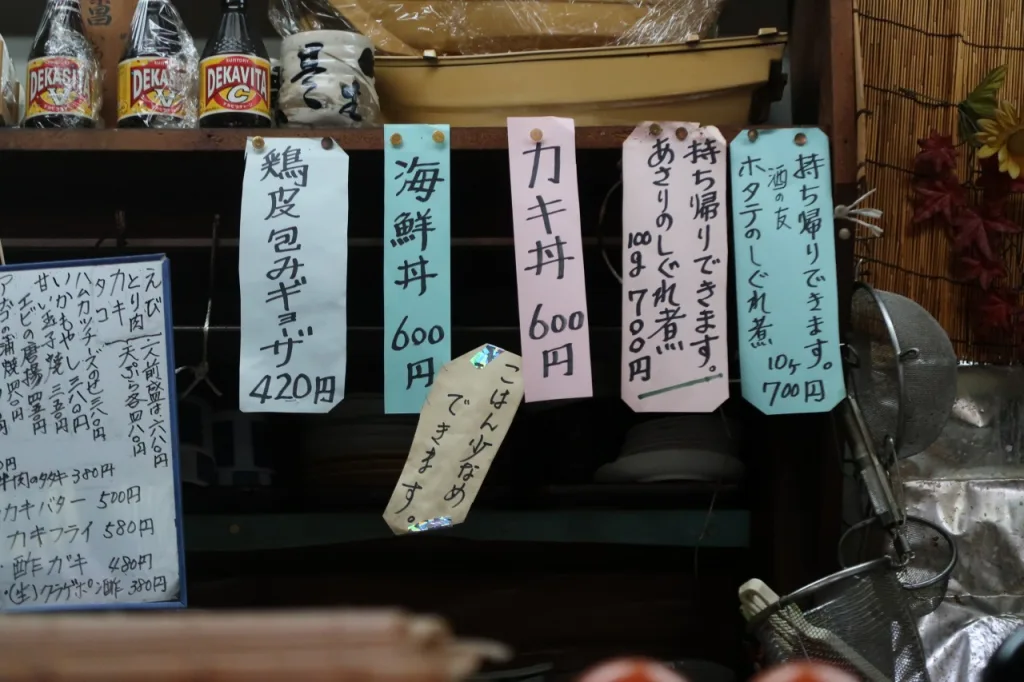 DEKAVITA
DEKAVITA
C
鶏皮包みギョーザ
420円
海鮮丼
600円
カキ丼
600円
持ち帰りできます。
あさりのしぐれ煮
100g 700円
持ち帰りできます。
酒の友
ホタテのしぐれ煮
10ヶ
700円
ごはん少なめ
できます。
えび
とり肉
カキ
タコ
天ぷら各四八〇円
一人前盛は六八〇円
ハムカツチーズのせ三八〇円
いかもやし 三八〇円
甘い玉子焼 三三〇円
牛肉のタタキ 380円
カキバター 500円
カキフライ 580円
酢ガキ 480円
(生)クラゲポン酢 380円